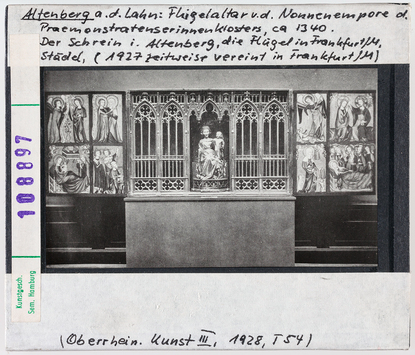 Altenberg a.d. Lahn: Flügelaltar v.d. Nonnenempore d.
Praemonstratenserinnenklosters, ca 1340.
Der Schrein i. Altenberg, die Flügel in Frankfurt/M,
Städel, (1927 zeitweise vereint in Frankfurt/M)
108897
Kunstgesch.
Sem. Hamburg
(Oberrhein. Kunst III, 1928, T 54)